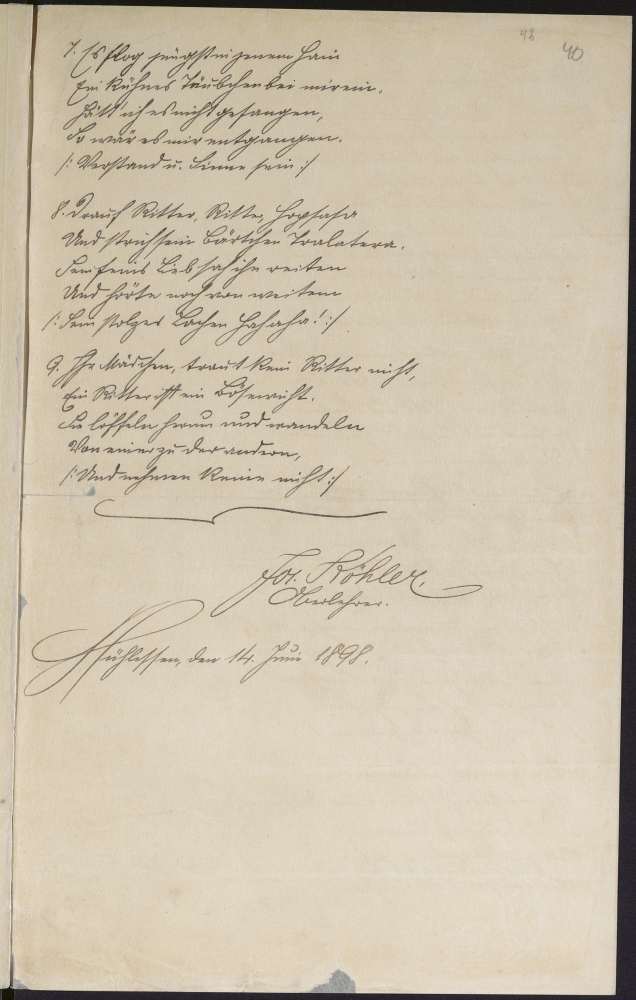 48 40
7. Es flog jüngst in jenem Hain
Ein kühnes Täubchen bei mir ein.
Hätt' ich es nicht gefangen,
So wär es mir entgangen.
/: Verstand u. Sinne sein :/
8. Drauf Ritter, Ritter, hopsasa
Und strich sein Bärtchen tralalera.
Sein Lieb sah ihn reiten
Und hörte noch von weitem
/: Sein stolzes Lachen hahaha! :/
9. Ihr Mädchen, traut kein Ritter nicht,
Ein Ritter ist ein Bösewicht.
Sie löffeln herum und wandeln
Von einer zu der andern,
/: Und nehmen keine nicht :/
Jos. Köhler,
Oberlehrer.
den 14. Juni 1898.